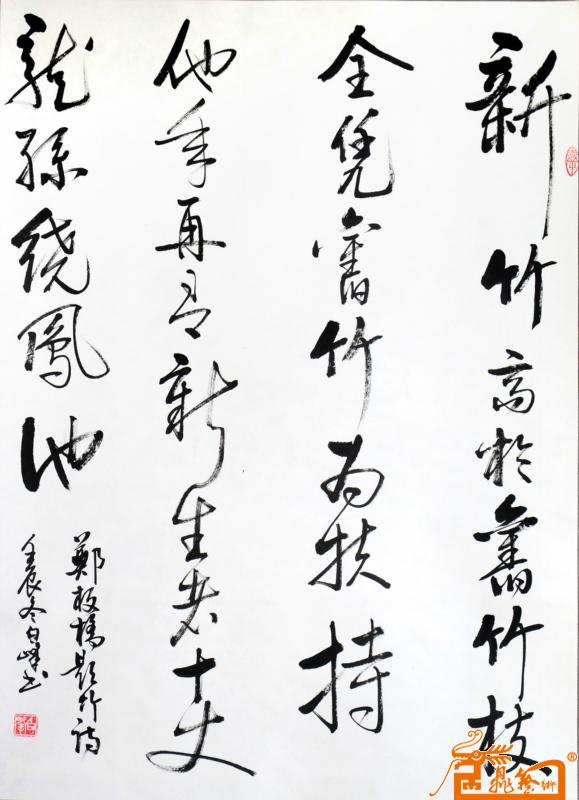 新竹高於舊竹枝
全凭舊竹为扶持
他年再有新生者十丈
龍孫繞鳳池
鄭板橋題竹詩
壬辰冬白峰书